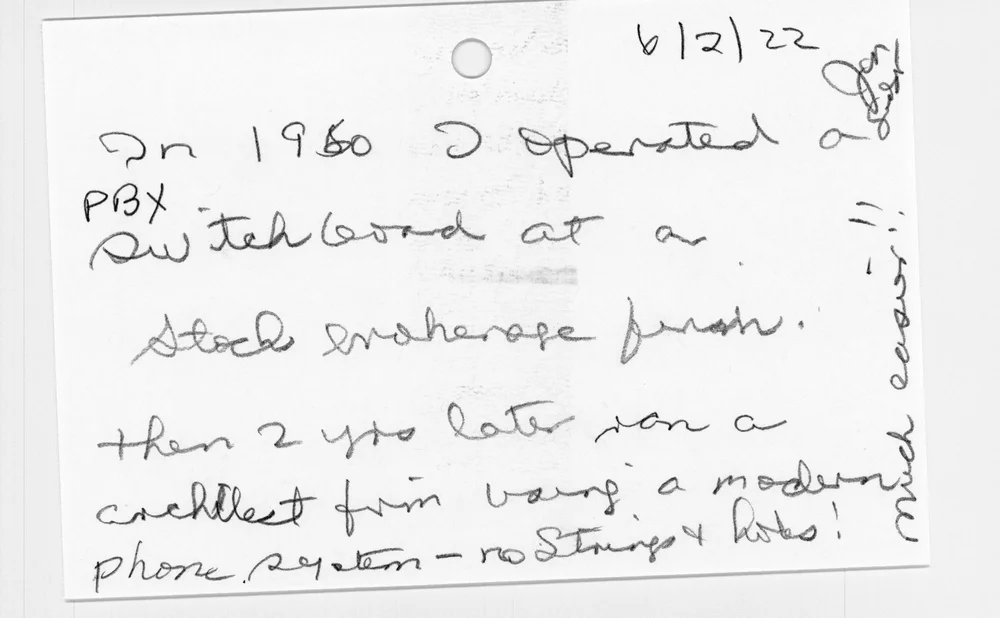 6/2/22
In 1960 I operated a
PBX
switchboard at a
stock brokerage firm.
then 2 yrs later ran a
architect firm using a modern
phone system - no Strings & holes!
much easier!!